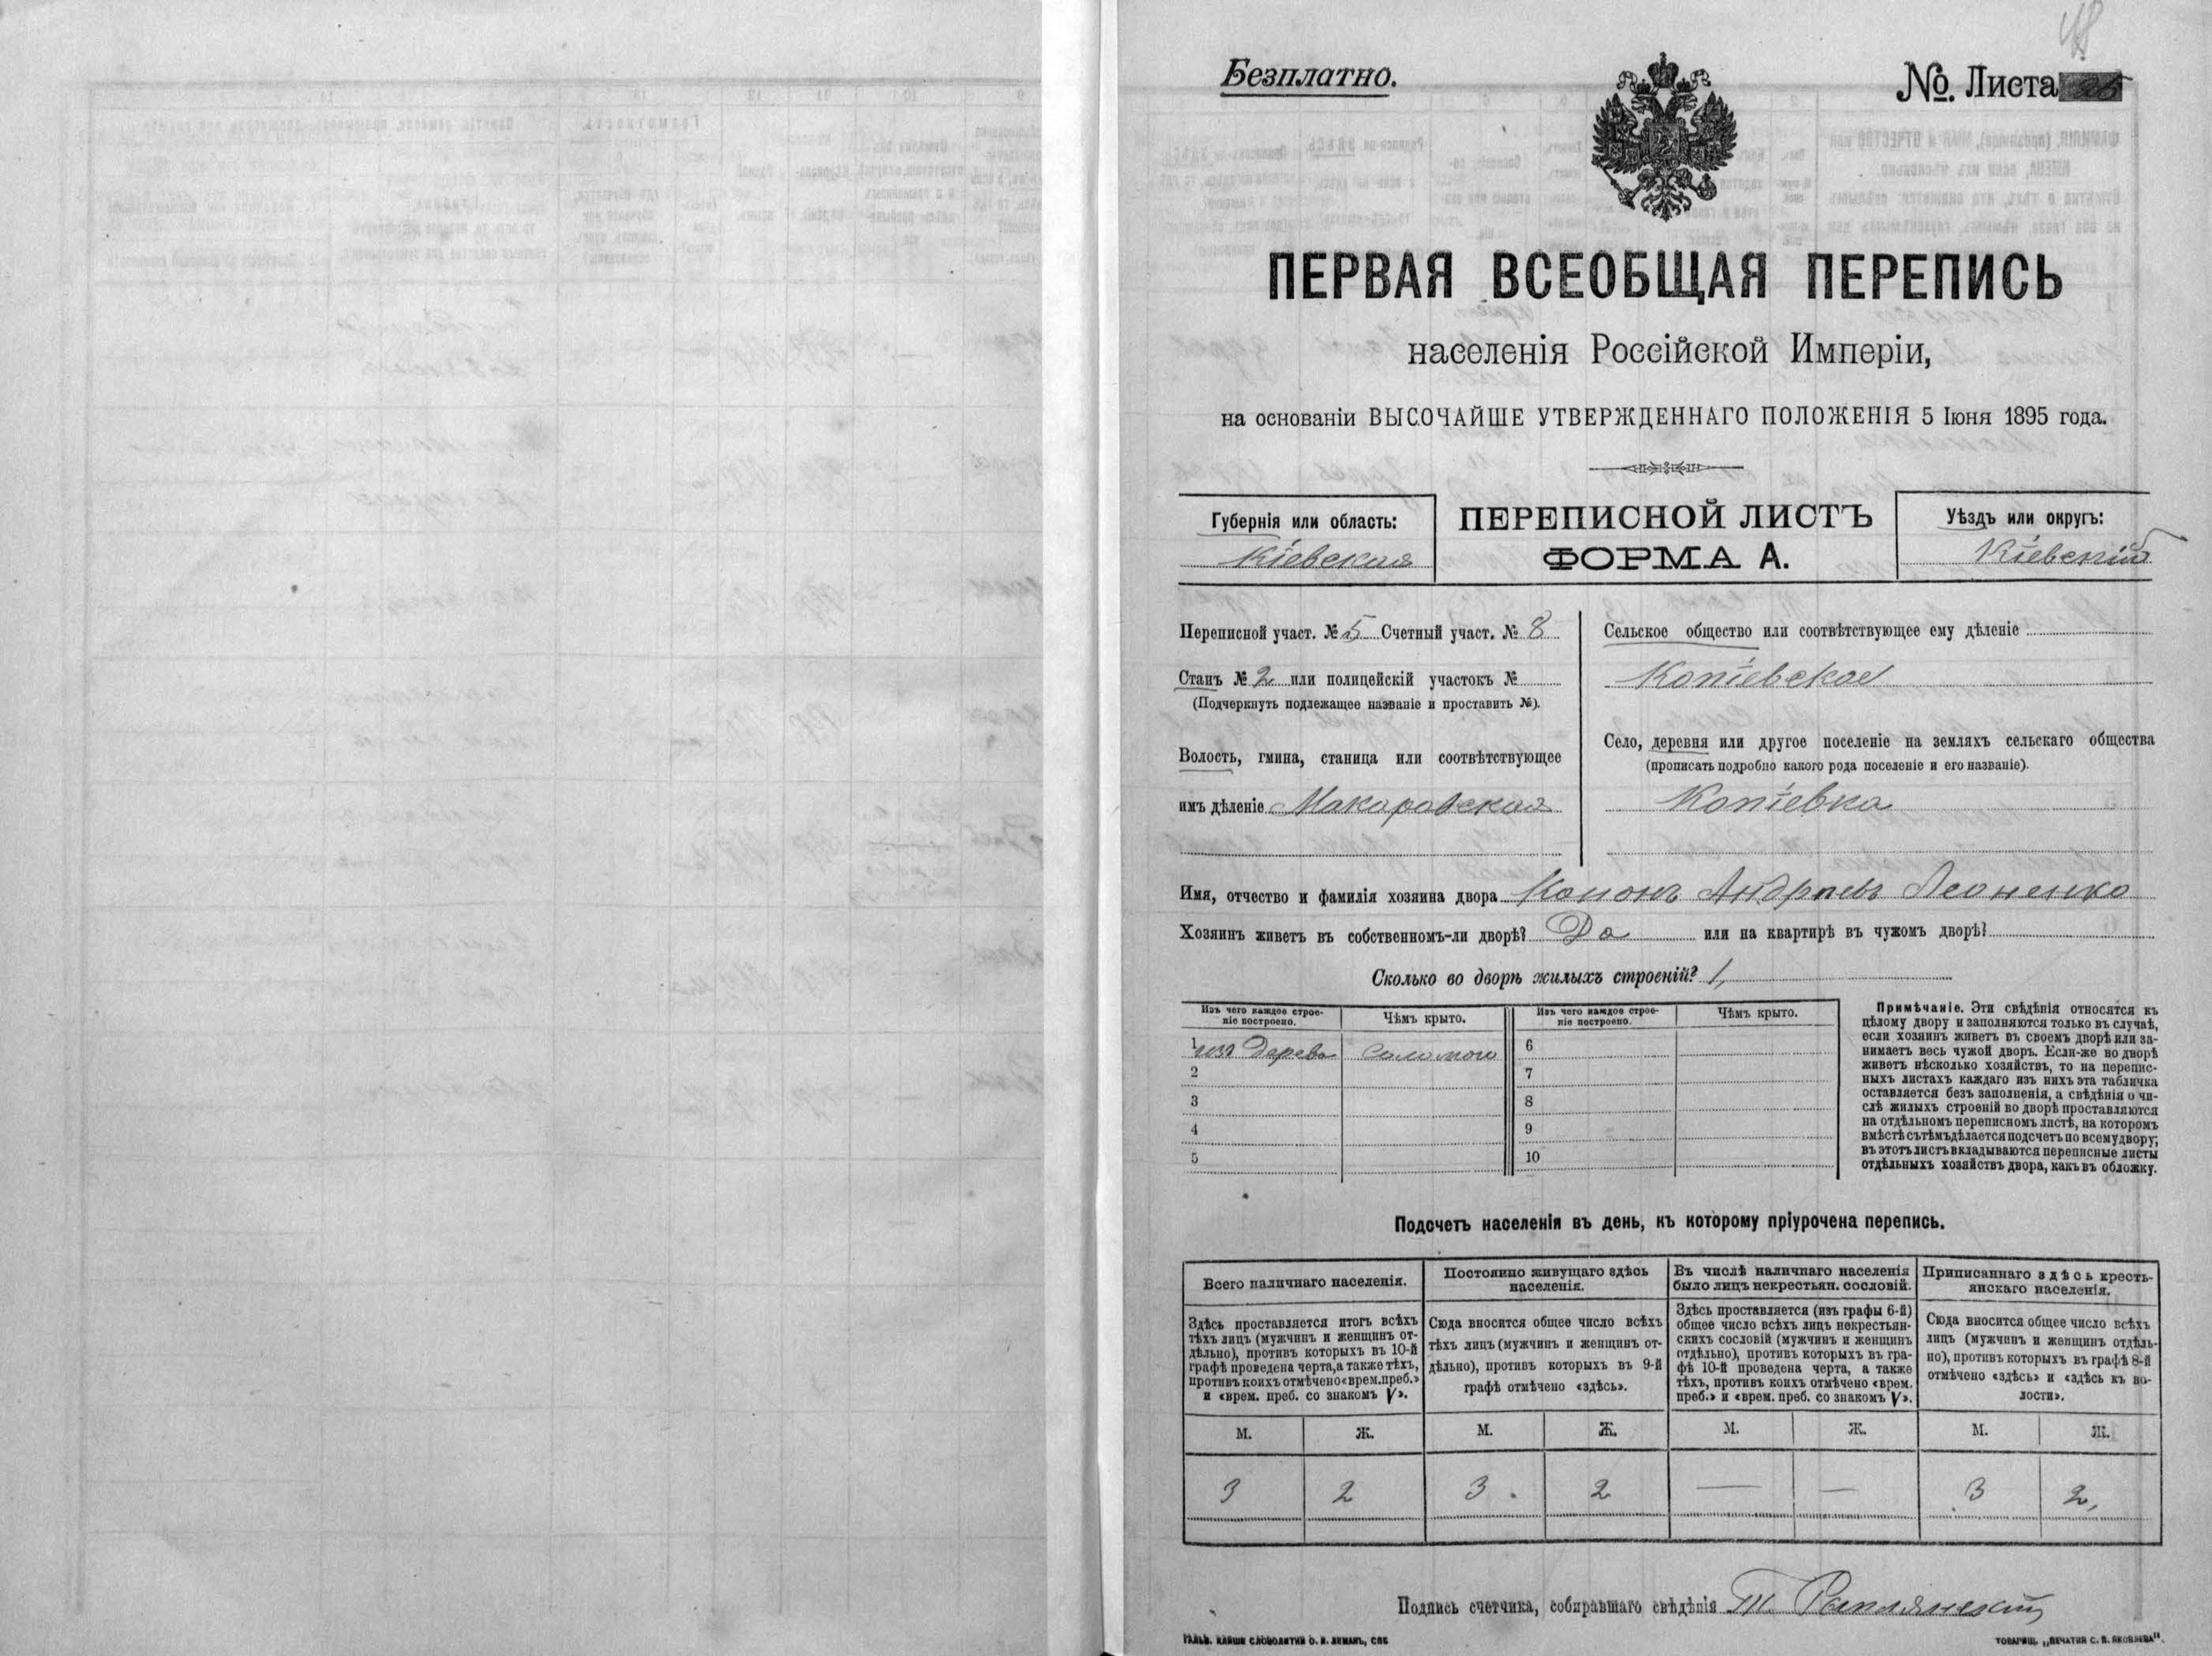 Безплатно.
№ Листа 25
ПЕРВАЯ ВСЕОБЩАЯ ПЕРЕПИСЬ
населенія Россійской Имперіи,
на основаніи ВЫСОЧАЙШЕ УТВЕРЖДЕННАГО ПОЛОЖЕНІЯ 5 Іюня 1895 года.
Губернія или область:
Кіевская
ПЕРЕПИСНОЙ ЛИСТЪ
ФОРМА А.
Уѣздъ или округъ:
Кіевскій
Переписной участ. № 5 Счетный участ. № 8
Станъ № 2 или полицейскій участокъ №
(Подчеркнуть подлежащее названіе и проставить №).
Волость, гмина, станица или соотвѣтствующее
имъ дѣленіе Макаровская
Сельское общество или соотвѣтствующее ему дѣленіе
Копіевское
Село, деревня или другое поселеніе на земляхъ сельскаго общества
(прописать подробно какого рода поселеніе и его названіе).
Копіевка
Имя, отчество и фамилія хозяина двора Кононъ Андреевъ Леоненко
Хозяинъ живетъ въ собственномъ-ли дворѣ? Да или на квартирѣ въ чужомъ дворѣ?
Сколько во дворѣ жилыхъ строеній? 1,
Изъ чего каждое строе-
ніе построено.
Чѣмъ крыто.
Изъ чего каждое строе-
ніе построено.
Чѣмъ крыто.
1 изъ дерева соломою 6
2 7
3 8
4 9
5 10
Примѣчаніе. Эти свѣдѣнія относятся къ
цѣлому двору и заполняются только въ случаѣ,
если хозяинъ живетъ въ своемъ дворѣ или за-
нимаетъ весь чужой дворъ. Если-же во дворѣ
живетъ нѣсколько хозяйствъ, то на перепис-
ныхъ листахъ каждаго изъ нихъ эта табличка
оставляется безъ заполненія, а свѣдѣнія о чи-
слѣ жилыхъ строеній во дворѣ проставляются
на отдѣльномъ переписномъ листѣ, на которомъ
вмѣстѣ съ тѣмъ дѣлается подсчетъ по всему двору;
въ этотъ листъ вкладываются переписные листы
отдѣльныхъ хозяйствъ двора, какъ въ обложку.
Подсчетъ населенія въ день, къ которому пріурочена перепись.
Всего наличнаго населенія.
Здѣсь проставляется итогъ всѣхъ
тѣхъ лицъ (мужчинъ и женщинъ от-
дѣльно), противъ которыхъ въ 10-й
графѣ проведена черта, а также тѣхъ,
противъ коихъ отмѣчено «врем. преб.»
и «врем. преб. со знакомъ V».
Постоянно живущаго здѣсь
населенія.
Сюда вносится общее число всѣхъ
тѣхъ лицъ (мужчинъ и женщинъ от-
дѣльно), противъ которыхъ въ 9-й
графѣ отмѣчено «здѣсь».
Въ числѣ наличнаго населенія
было лицъ некрестьян. сословій.
Здѣсь проставляется (изъ графы 6-й)
общее число всѣхъ лицъ некрестьян-
скихъ сословій (мужчинъ и женщинъ
отдѣльно), противъ которыхъ въ гра-
фѣ 10-й проведена черта, а также
тѣхъ, противъ коихъ отмѣчено «врем.
преб.» и «врем. преб. со знакомъ V».
Приписаннаго здѣсь кресть-
янскаго населенія.
Сюда вносится общее число всѣхъ
лицъ (мужчинъ и женщинъ отдѣль-
но), противъ которыхъ въ графѣ 8-й
отмѣчено «здѣсь» и «здѣсь къ во-
лости».
М. Ж. М. Ж. М. Ж. М. Ж.
3 2 3 2 — — 3 2,
Подпись счетчика, собиравшаго свѣдѣнія
ГАЛЬВ. КЛИШЕ СЛОВОЛИТНИ О. И. ЛЕМАНЪ, СПБ
ТОВАРИЩ. „ПЕЧАТНЯ С. П. ЯКОВЛЕВА".